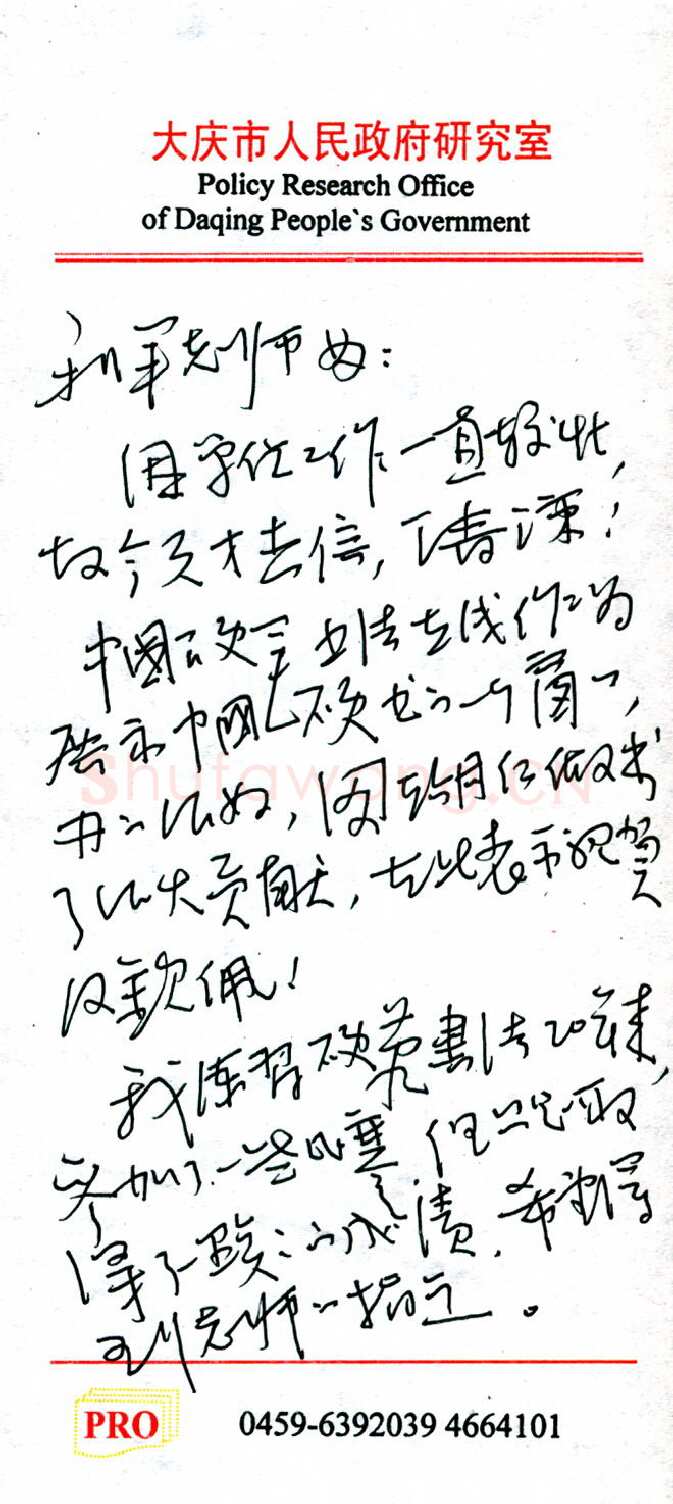 大庆市人民政府研究室
Policy Research Office
of Daqing People`s Government
利军老师好：
因单位工作一直较忙，
故今天才去信，请谅！
中国硬笔书法在线作为
展示中国硬书的一个窗口，
办的很好，因给朋们做出
了很大贡献，在此表示祝贺
及钦佩！
我练习硬笔書法20年来，
参加了一些比赛，但只取
得了一般的成績，希望得
到老师的指正。
shufawang.CN
PRO
0459-6392039 4664101